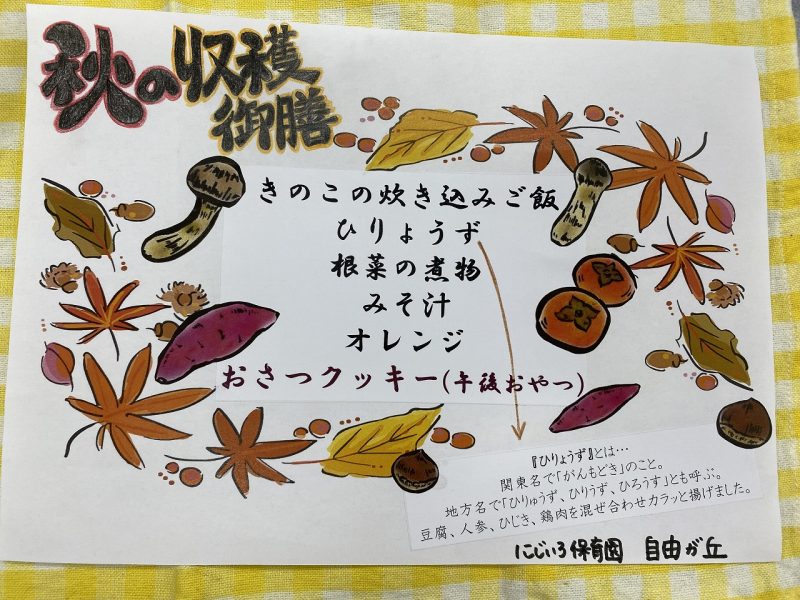 秋の収穫
御膳
きのこの炊き込みご飯
ひりょうず
根菜の煮物
みそ汁
オレンジ
おさつクッキー(午後おやつ)
『ひりょうず』とは…
関東名で「がんもどき」のこと。
地方名で「ひりゅうず、ひりうず、ひろうす」とも呼ぶ。
豆腐、人参、ひじき、鶏肉を混ぜ合わせカラッと揚げました。
にじいろ保育園 自由が丘